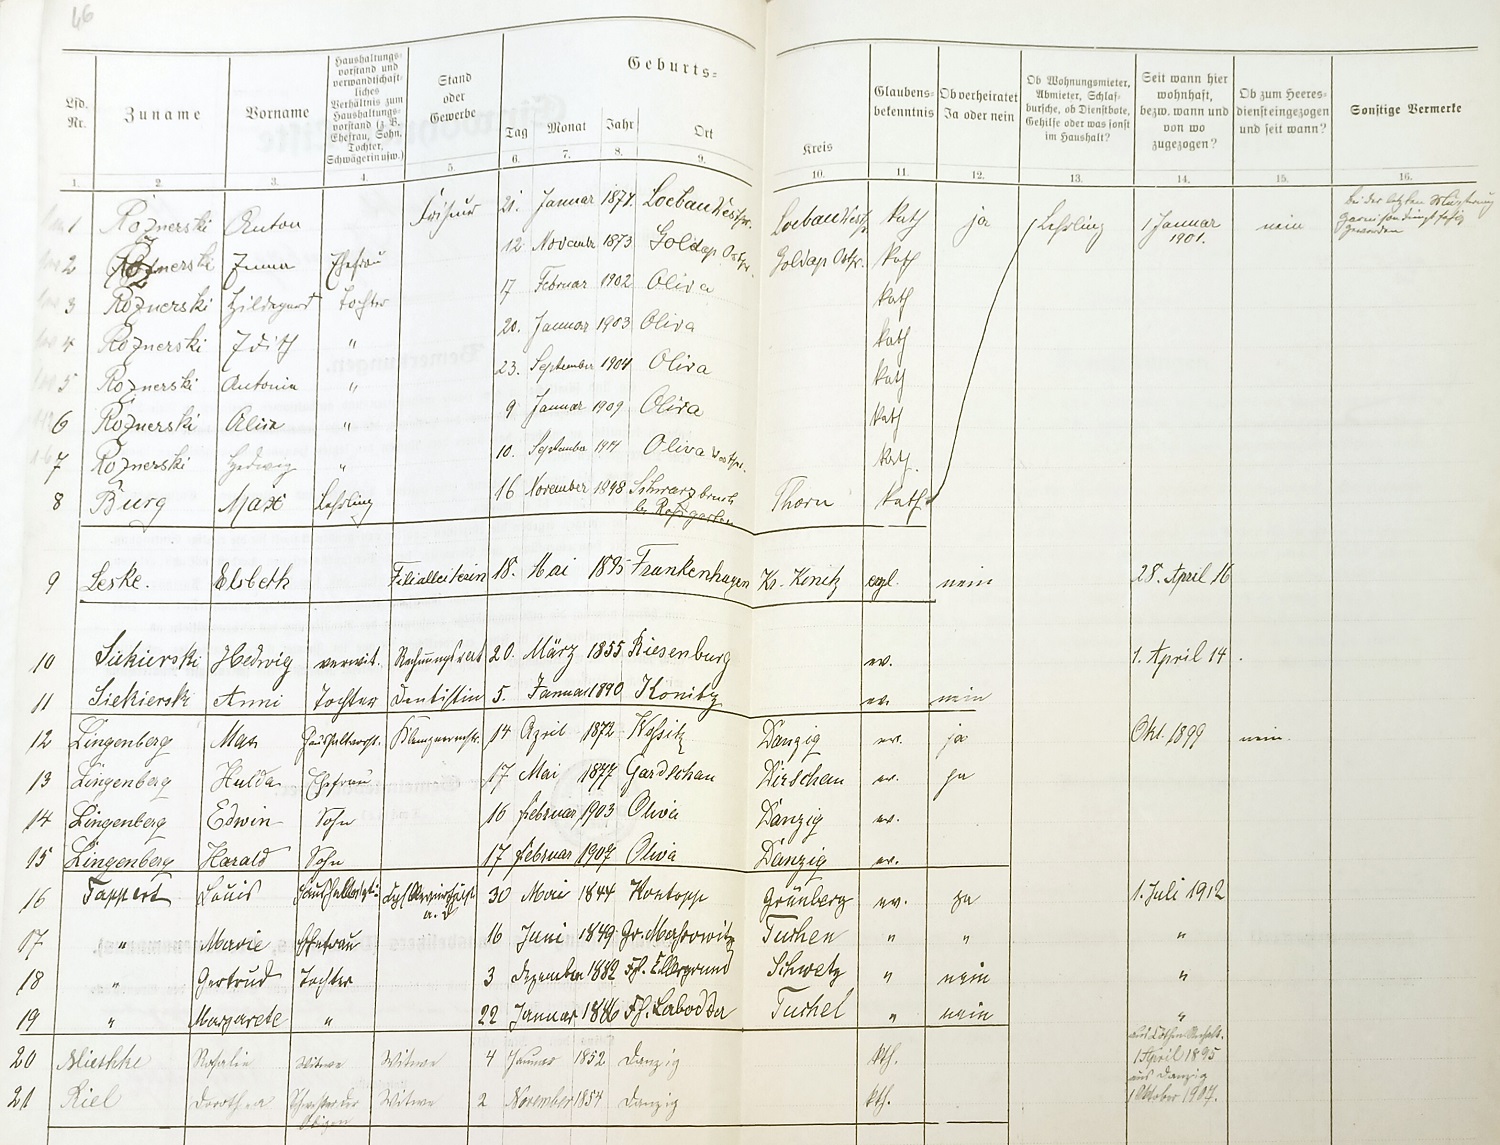 46
Lfd. Nr.
Zuname
Vorname
Haushaltungs-
vorstand und
verwandtschaft-
liches
Verhältnis zum
Haushaltungs-
vorstand (z. B.
Ehefrau, Sohn,
Tochter,
Schwägerin usw.)
Stand
oder
Gewerbe
Geburts-
Tag Monat Jahr Ort
Kreis
Glaubens-
bekenntnis
Ob verheiratet
Ja oder nein
Ob Wohnungsmieter,
Abmieter, Schlaf-
bursche, ob Dienstbote,
Gehilfe oder was sonst
im Haushalt?
Seit wann hier
wohnhaft,
bezw. wann und
von wo
zugezogen?
Ob zum Heeres-
dienst eingezogen
und seit wann?
Sonstige Vermerke
1. 2. 3. 4. 5. 6. 7. 8. 9. 10. 11. 12. 13. 14. 15. 16.
1 Roznerski Anton Friseur 21. Januar 1871. Loebau Westpr. Loebau Westpr. kath ja Lehrling 1 Januar 1901. nein bei der letzten Musterung garnisondienstfähig geworden
2 Roznerski Emma Ehefrau 12 November 1873 Goldap Ostpr. Goldap Ostpr. kath
3 Roznerski Hildegard Tochter 17 Februar 1902 Oliva kath
4 Roznerski Edith " 20. Januar 1903 Oliva kath
5 Roznerski Antonia " 23. September 1904 Oliva kath
6 Roznerski Alice " 9 Januar 1909 Oliva kath
7 Roznerski Hedwig " 10. September 1911 Oliva Westpr. kath.
8 Burg Max Lehrling 16 November 1898 Schwarzbruch bei Roßgarten Thorn kath
9 Leske. Elsbeth Filialleiterin 18. Mai 1895 Frankenhagen Kr. Konitz evgl. nein 28. April 16
10 Siekierski Hedwig verwit. Rechnungsrat 20. März 1855 Riesenburg ev. 1. April 14.
11 Siekierski Anni Tochter Dentistin 5. Januar 1890 Konitz ev. nein
12 Lingenberg Max Haushaltvorst. Klempnermstr. 14 April 1872 Wossitz Danzig ev. ja Okt. 1899 nein.
13 Lingenberg Hulda Ehefrau 17 Mai 1877 Gardschau Dirschau ev. ja
14 Lingenberg Edwin Sohn 16 Februar 1903 Oliva Danzig ev.
15 Lingenberg Harald Sohn 17 Februar 1907 Oliva Danzig ev.
16 Tappert Louis a. D 30 Mai 1844 Kontopp Grünberg ev. ja 1. Juli 1912
17 " Marie Ehefrau 16 Juni 1849 Gr. Massowitz " " "
18 " Gertrud Tochter 3 Dezember 1882 Fh. Ellergrund Schwetz " nein "
19 " Margarete " 22 Januar 1886 Tuchel " nein "
20 Mischke Rosalie Witwe Witwe 4 Januar 1852 Danzig kth. aus Cöthen Anhalt. 1 April 1895
21 Riel Dorothea Schwester der Obigen Witwe 2 November 1854 Danzig kth. aus Danzig 1 Oktober 1907.